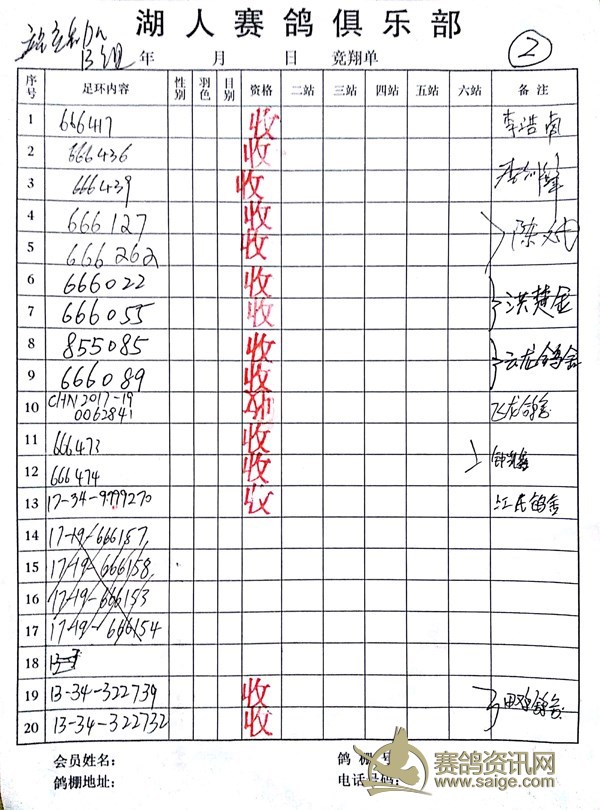 湖人赛鸽俱乐部
13组 年 月 日 竞翔单 ②
序号 足环内容 性别 羽色 目别 资格 二站 三站 四站 五站 六站 备注
1 666417 收 李浩南
2 666436 收
3 666439 收
4 666127 收 陈
5 666262 收
6 666022 收 洪楚金
7 666055 收
8 855085 收 云龙鸽舍
9 666089 收
10 CHN 2017-19 收 飞龙鸽舍
0062841
11 666473 收
12 666474 收
13 17-34-9799270 收 江氏鸽舍
14 17-19-666157
15 17-19-666158
16 17-19-666153
17 17-19-666154
18 13-3
19 13-34-322739 收
20 13-34-322732 收
会员姓名: 鸽棚号
鸽棚地址: 电话号码:
赛鸽资讯网
www.saige.com